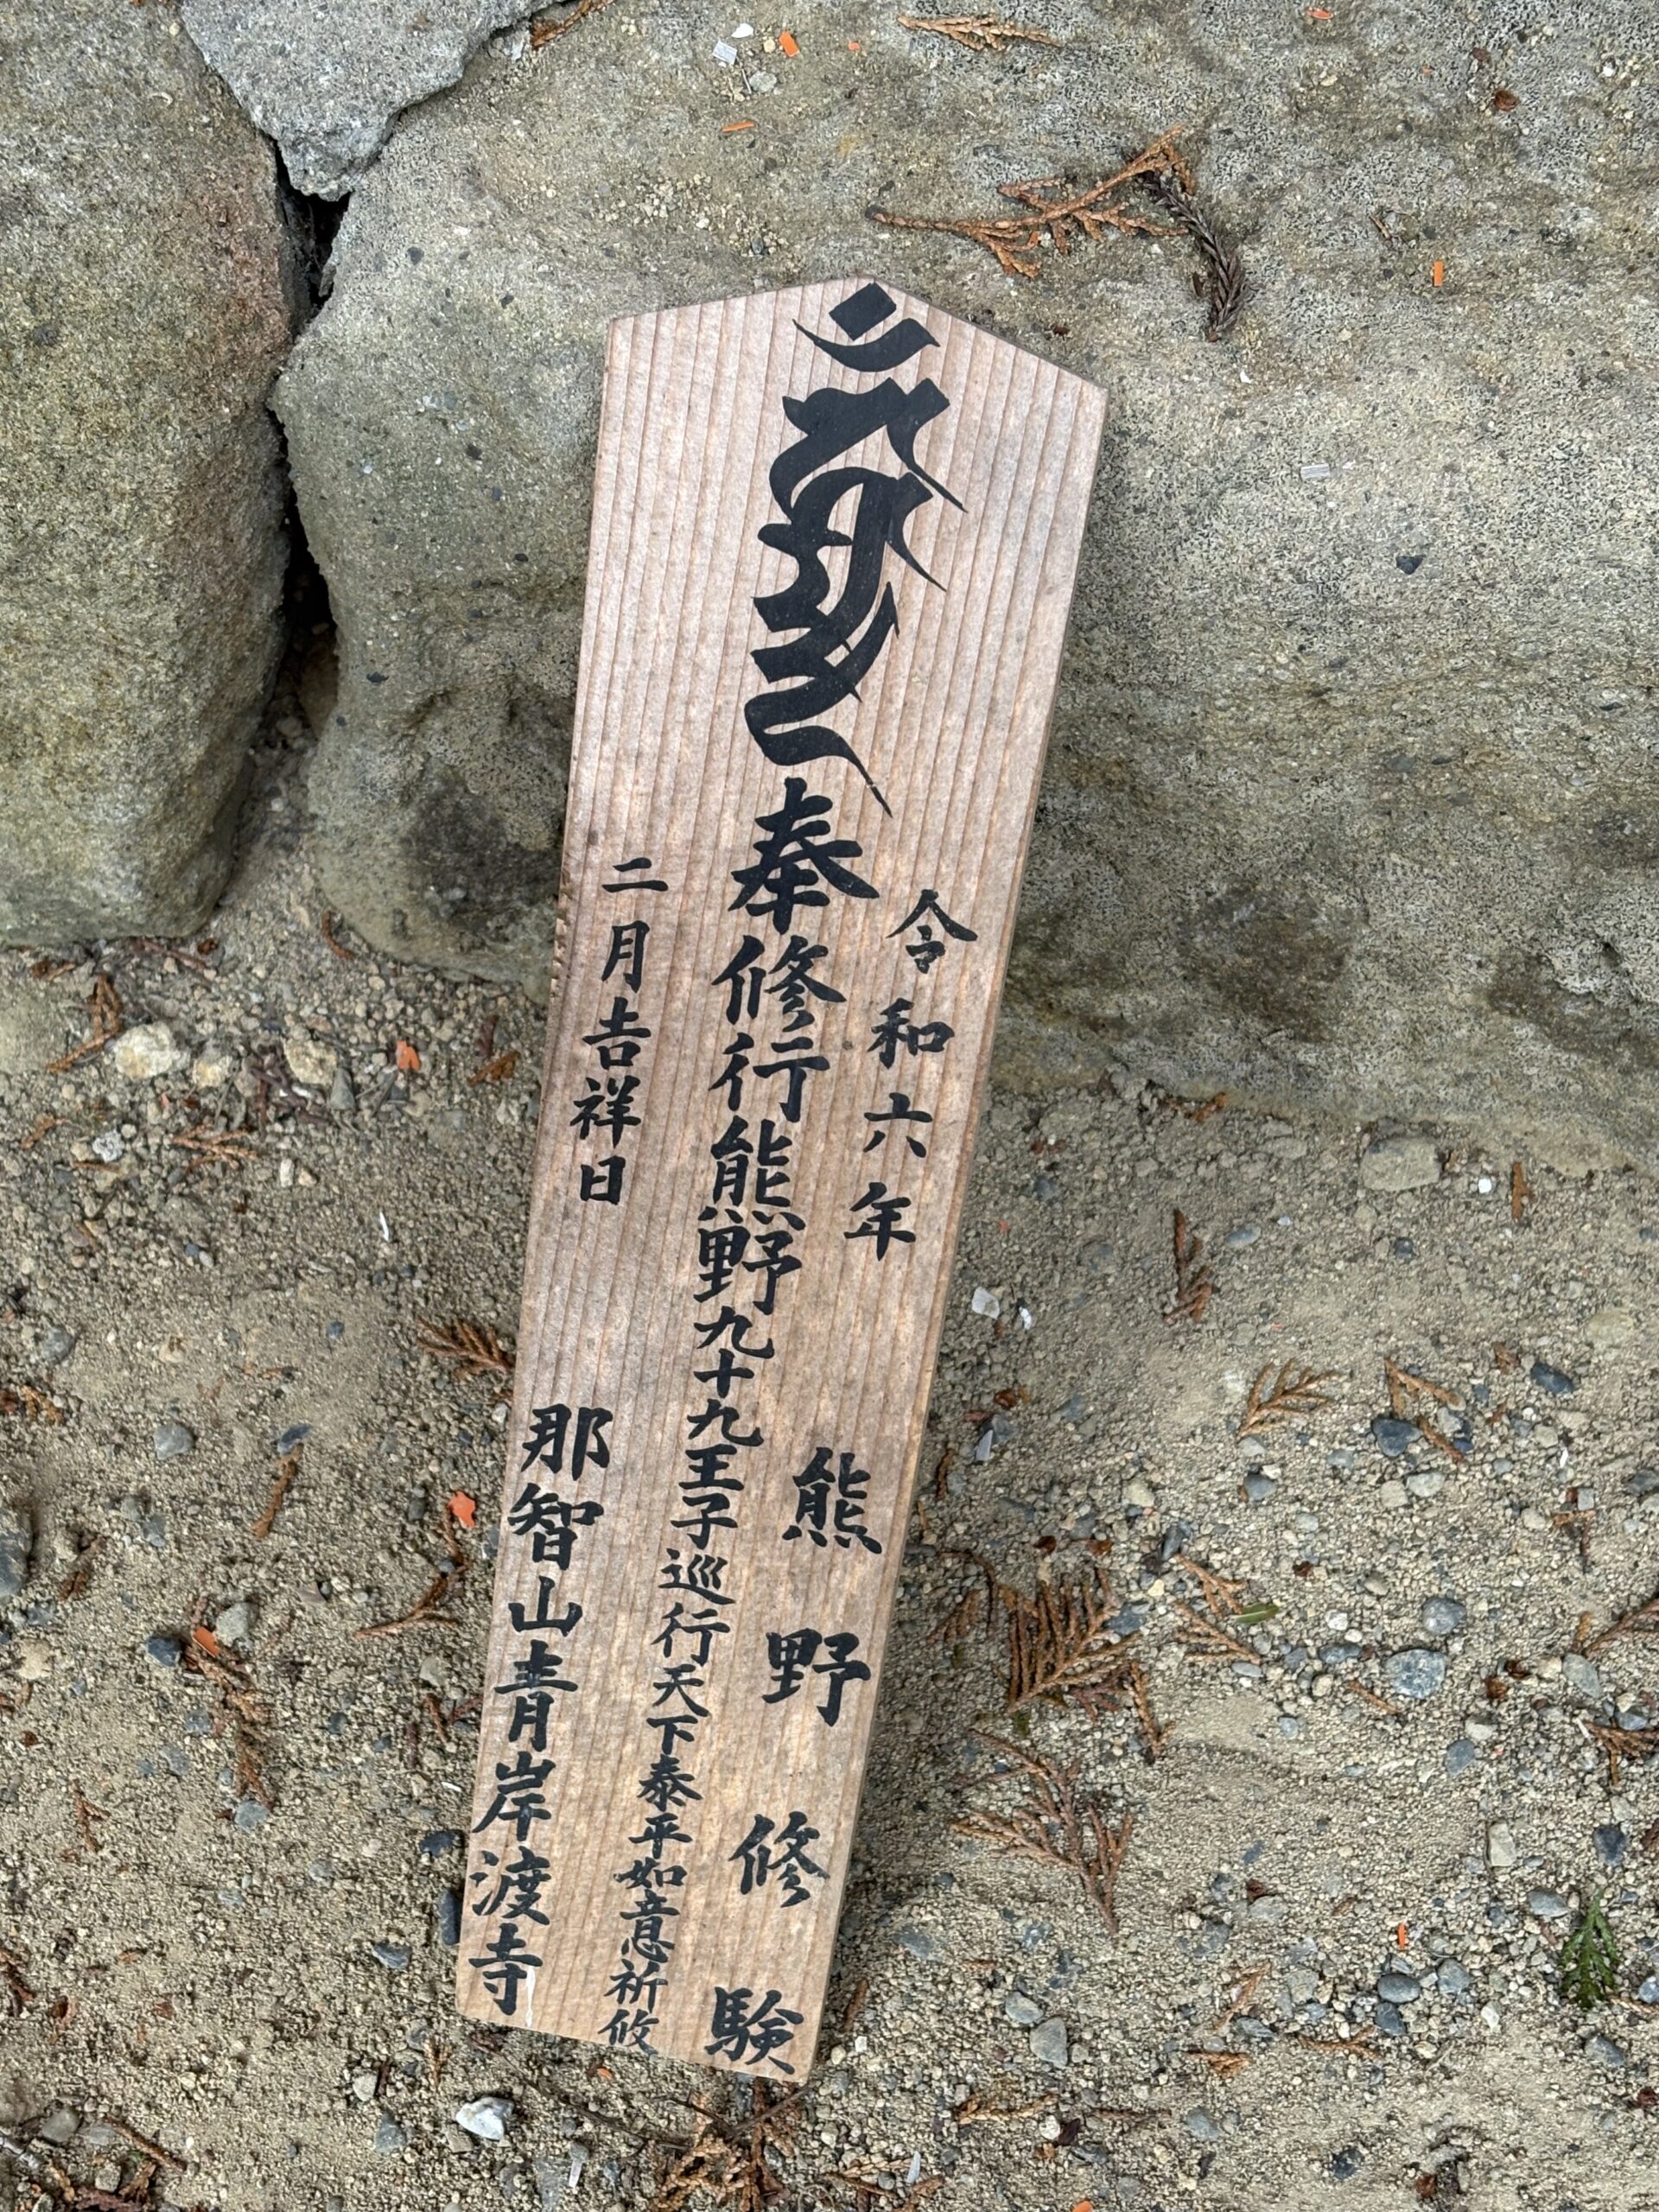 奉修行熊野九十九王子巡行天下泰平如意祈攸
令和六年
二月吉祥日
熊野修験
那智山青岸渡寺